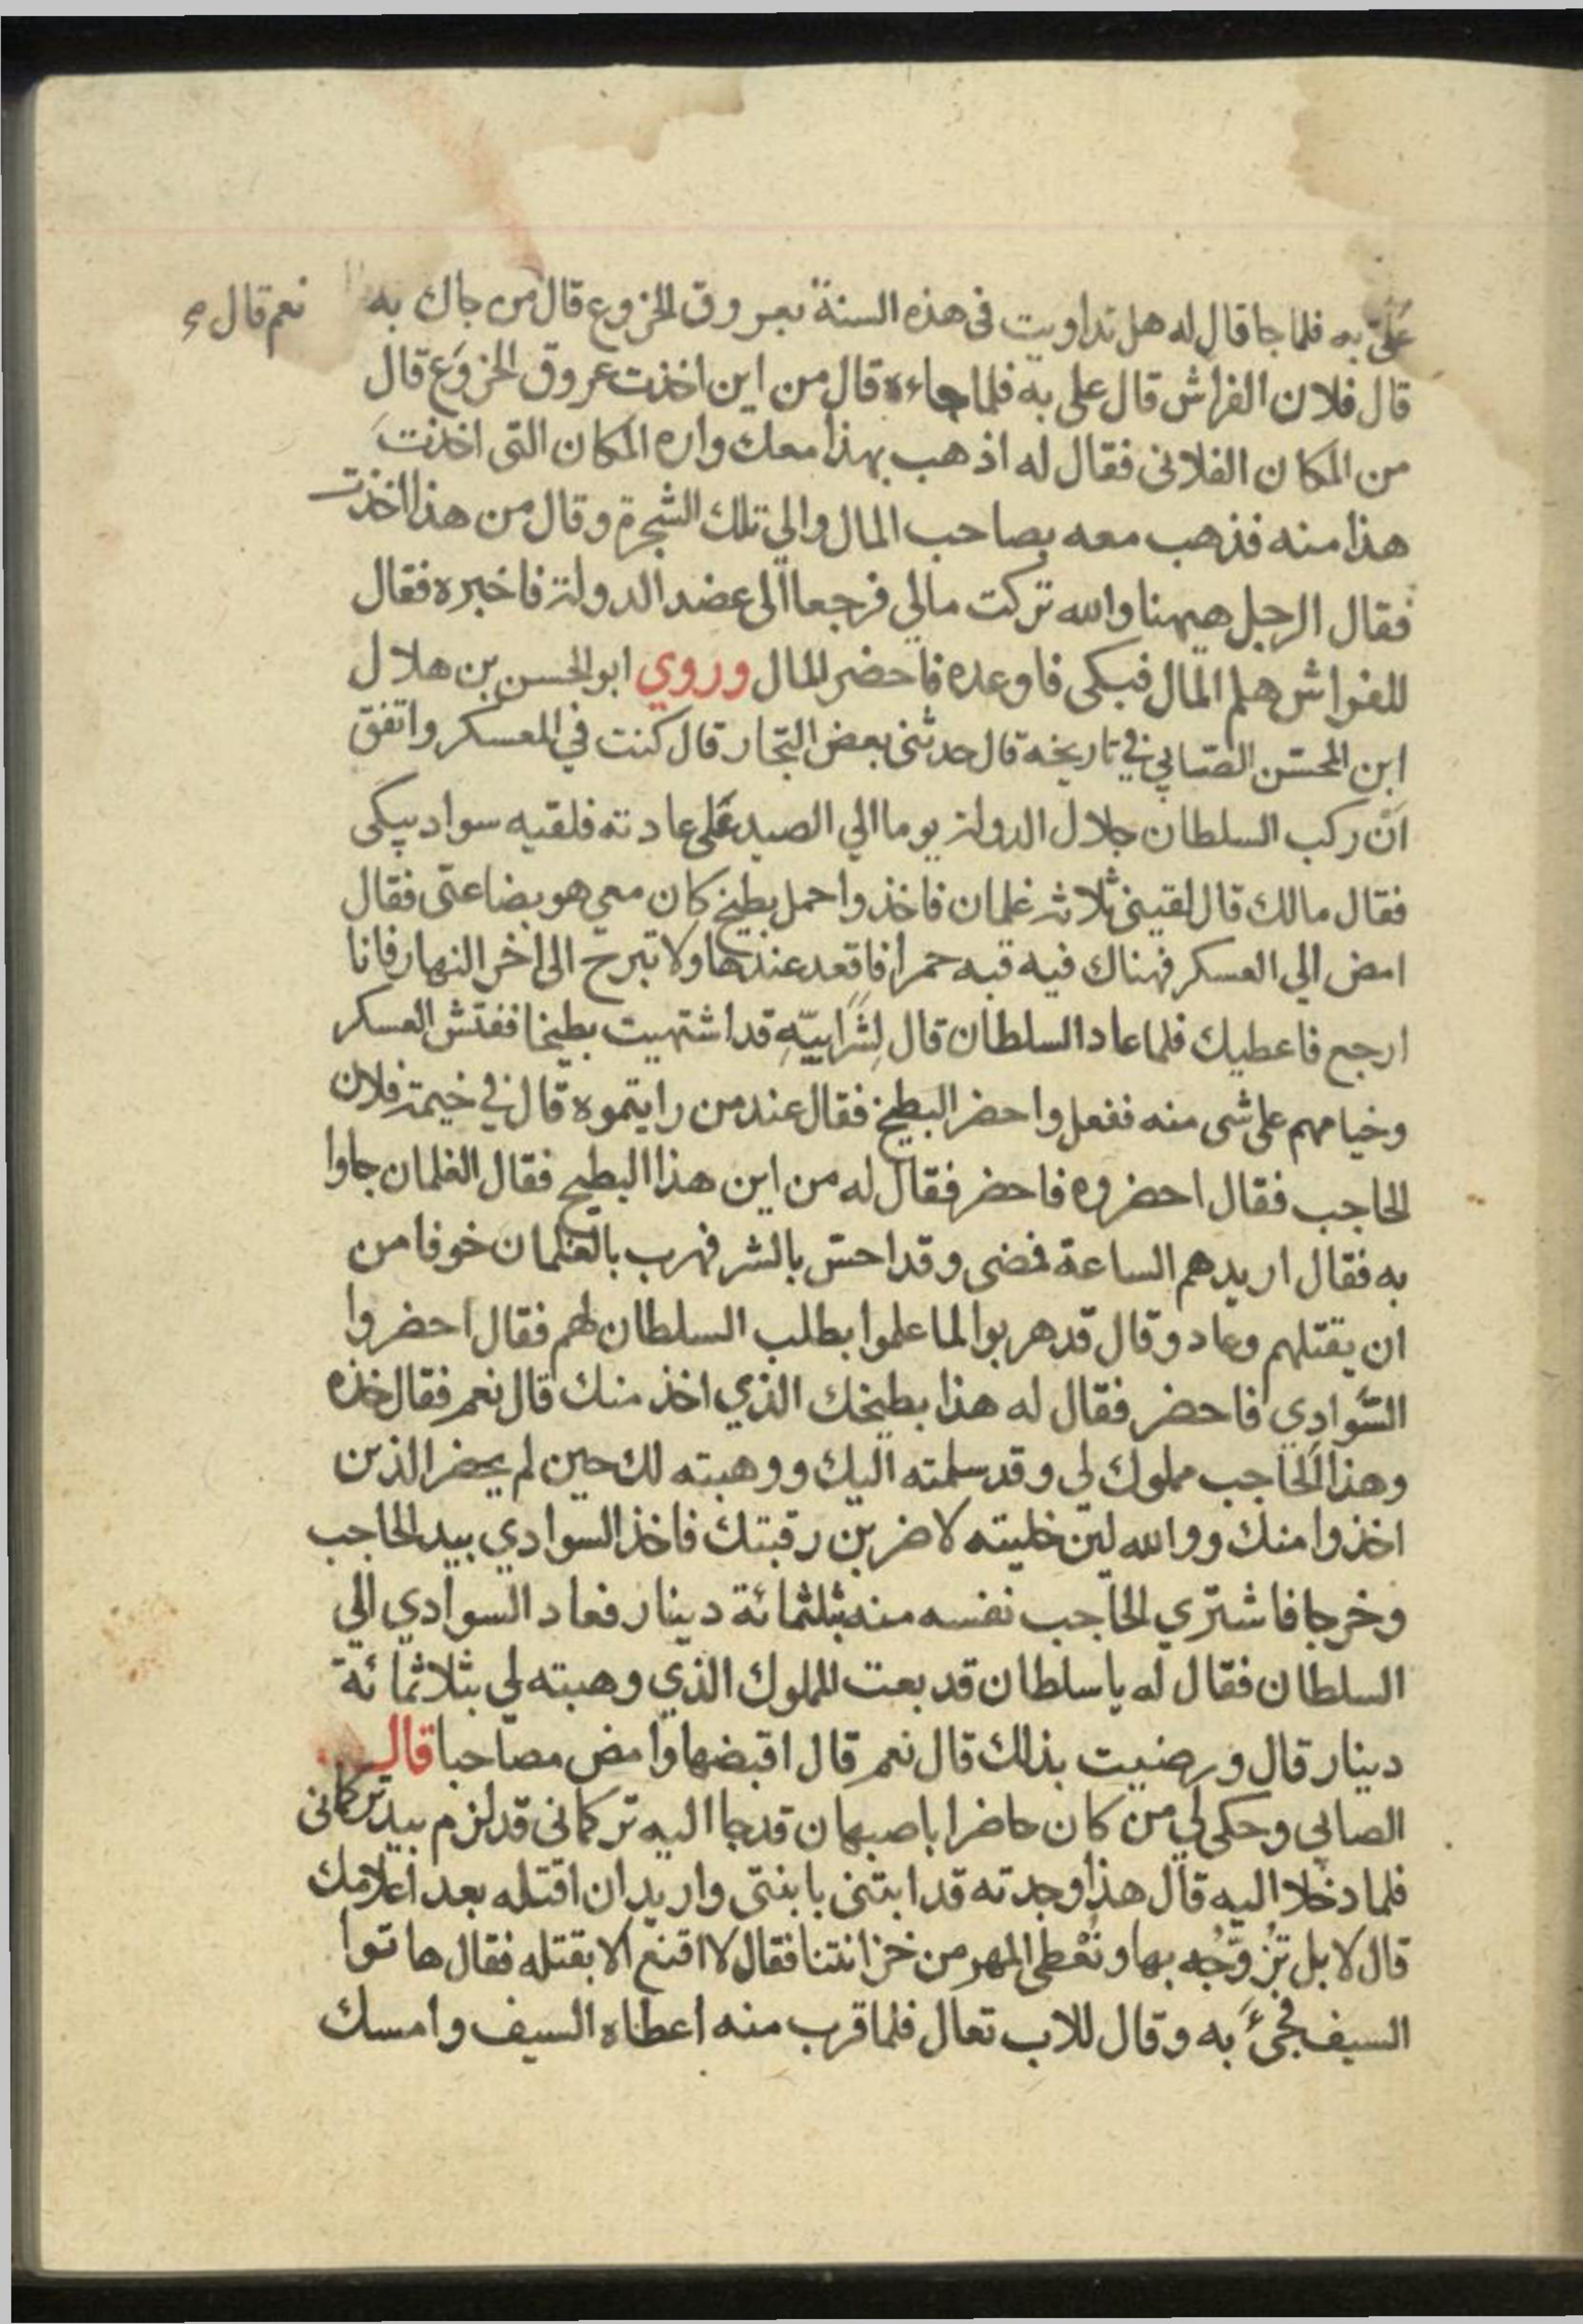 عَلَىَّ به فلما جا قال له هل تداويت فى هذه السنة بعروق الخروع قال من جاك به
نعم قال صح
قال فلان الفراش قال على به فلما جاءه قال من اين اخذت عروق الخروَع قال
من المكان الفلانى فقال له اذهب بهذا معك واره المكان التى اخذتَ
هذا منه فذهب معه بصاحب المال والي تلك الشجرة وقال من هذا اخذت
فقال الرجل ههنا والله تركت مالي فرجعا الى عضد الدولة فاخبره فقال
للفراش هلم المال فبكى فاوعده فاحضر المال وروي ابو الحسن بن هلال
ابن المحسّن الصّابي في تاريخه قال حدثنى بعض التجار قال كنت في المعسكر واتفق
انّ ركب السلطان جلال الدولة يوما الي الصيد عَلى عادته فلقيه سواد يبكى
فقال مالك قال لقينى ثلاثة غلمان فاخذوا حمل بطيخ كان معي هو بضاعتى فقال
امض الي العسكر فهناك فيه قبه حمرا فاقعد عندها ولا تبرح الى اخر النهار فانا
ارجع فاعطيك فلما عاد السلطان قال لِشَرَابيّهِ قد اشتهيت بطيخا ففتش العسكر
وخيامهم على شى منه ففعل واحضر البطيخ فقال عند من رايتموه قال في خيمة فلان
الحاجب فقال احضروه فاحضر فقال له من اين هذا البطيح فقال الغلمان جاوا
به فقال اريدهم الساعة فمضى وقد احسّ بالشر فهرب بالغلمان خوفا من
ان يقتلهم وعاد وقال قد هربوا لما علموا بطلب السلطان لهم فقال احضروا
السّوادي فاحضر فقال له هذا بطيخك الذي اخذ منك قال نعم فقال خذه
وهذا الحاجب مملوك لي وقد سلمته اليك ووهبته لك حين لم يحضر الذين
اخذوا منك ووالله لين خليته لاضربن رقبتك فاخذ السوادي بيد الحاجب
وخرجا فاشترى الحاجب نفسه منه بثلثمائة دينار فعاد السوادي الي
السلطان فقال له يا سلطان قد بعت المملوك الذي وهبته لي بثلاثمائة
دينار قال ورضيت بذلك قال نعم قال اقبضها وامض مصاحبا قال
الصابي وحكى لي من كان حاضرا باصبهان قد جا اليه تركمانى قد لزم بيد تركمانى
فلما دخلا اليه قال هذا وجدته قد ابتنى بابنتى واريد ان اقتله بعد اعلامك
قال لا بل تزوّجُه بها ونُعْطى المهر من خزانتنا فقال لا اقنع الا بقتله فقال هاتوا
السيف فجئَ به وقال للاب تعال فلما قرب منه اعطاه السيف وامسك